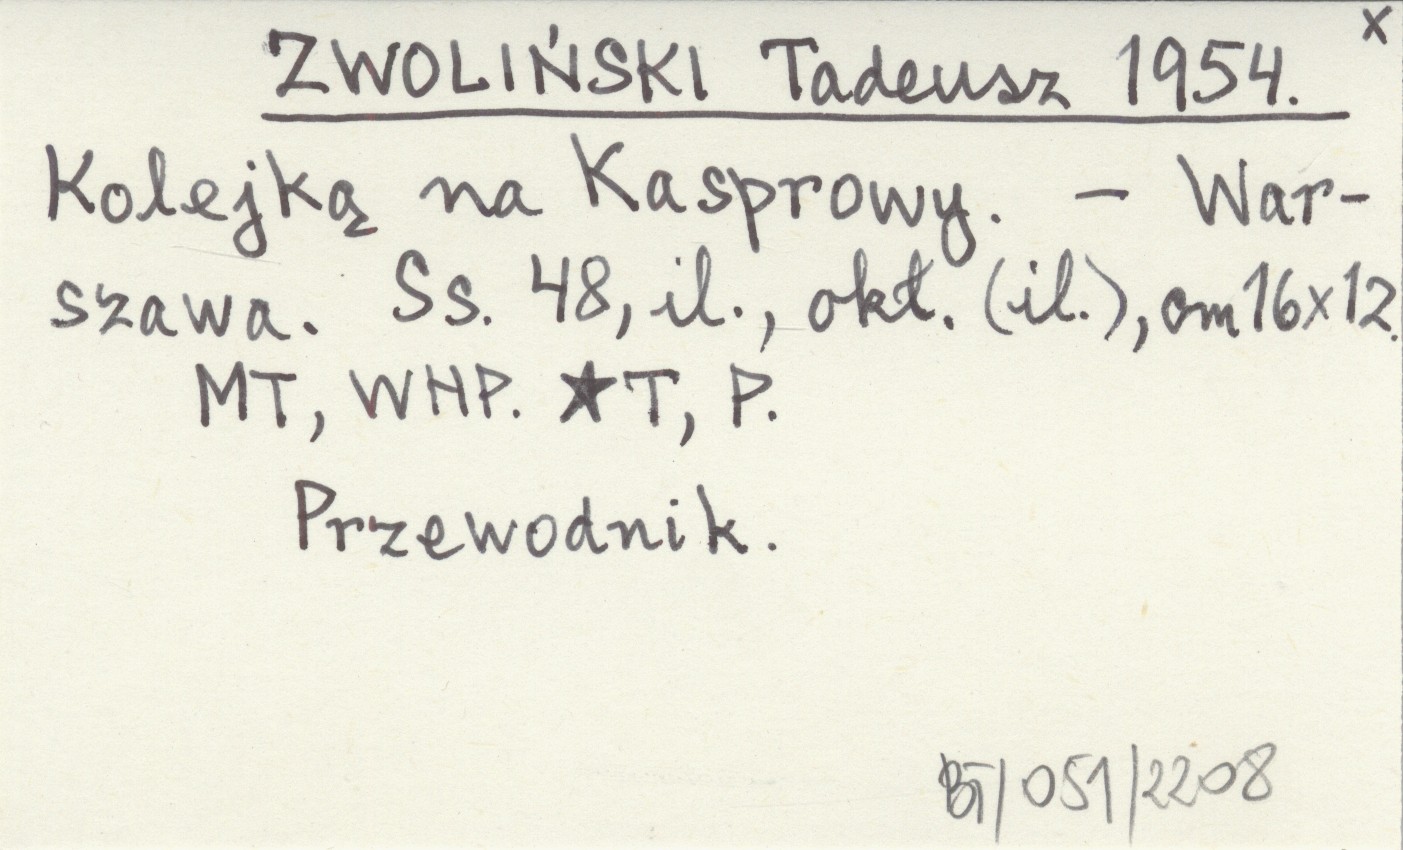 x
ZWOLIŃSKI Tadeusz 1954.
Kolejką na Kasprowy. – War-
szawa. Ss. 48, il., okł. (il.), cm 16x12.
MT, WHP. ★T, P.
Przewodnik.
BT/051/2208